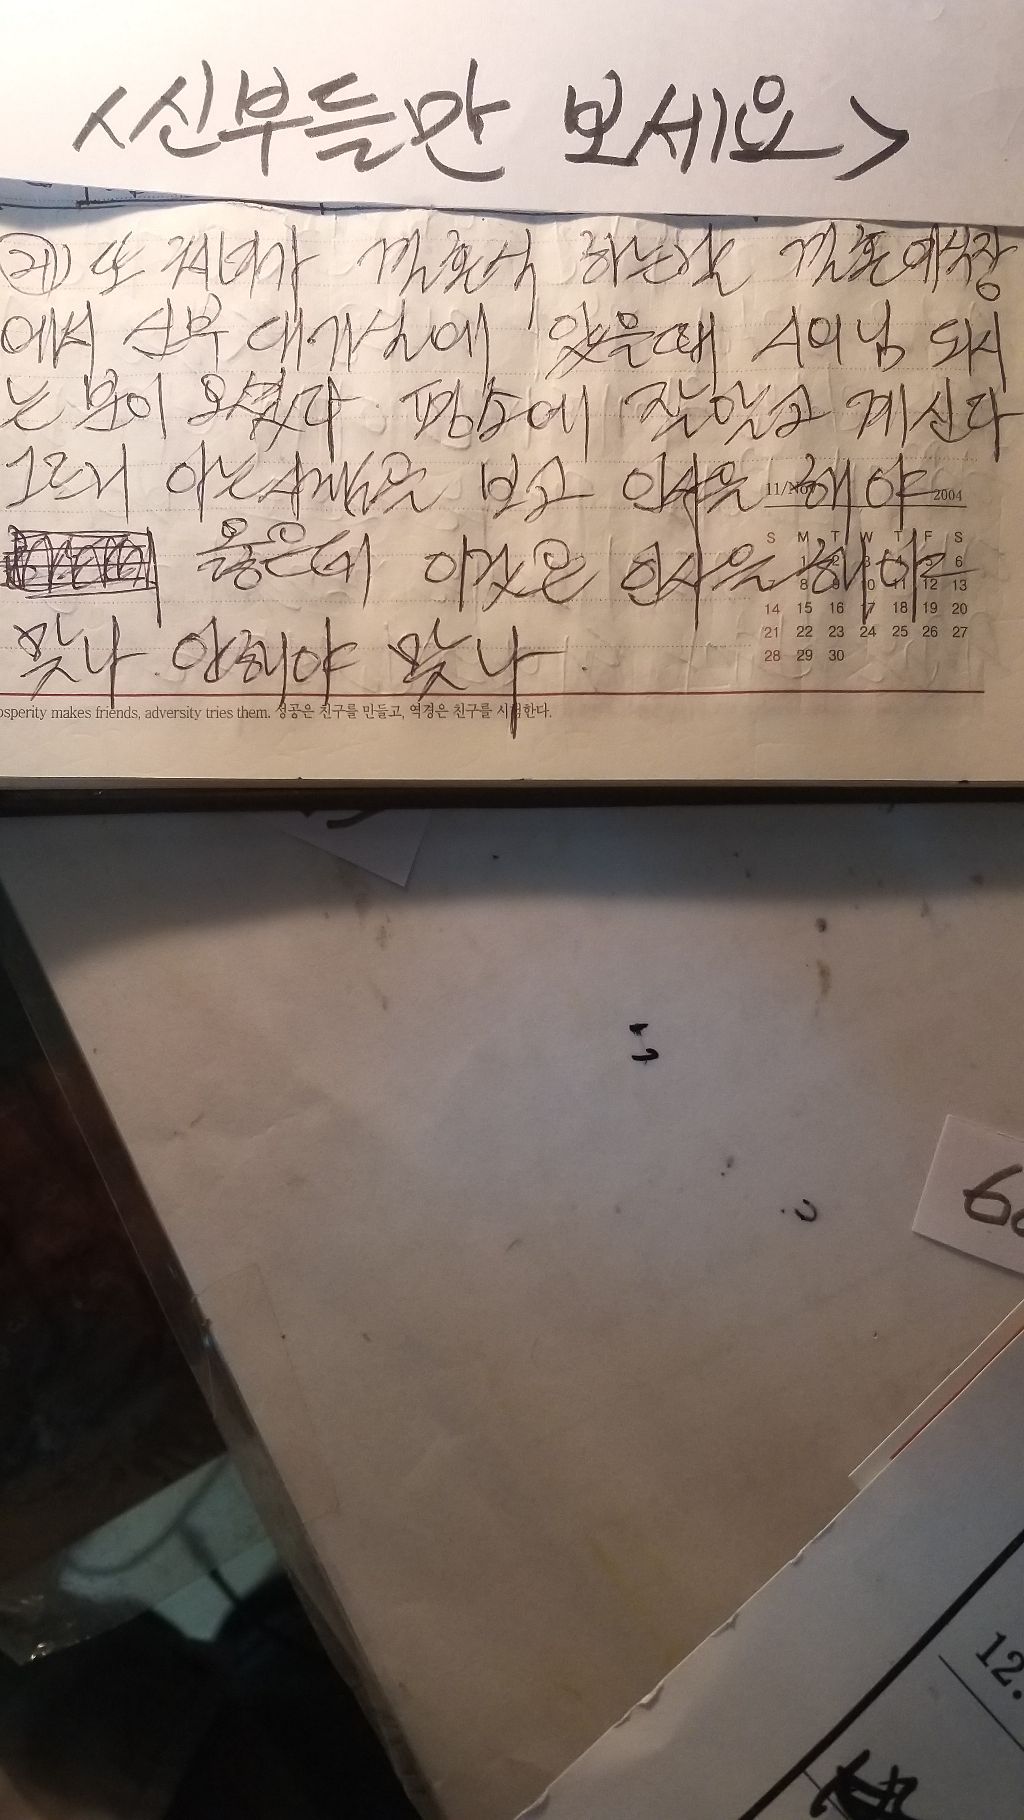 <신부들만 보세요>
예) 또 처녀가 결혼식 하는날 결혼예식장
에서 신부 대기실에 있을때 시이님 되시
는 분이 오셨다 평소에 잘알고 계신다
그르니 아는사람을 보고 인사을 해야
옳은데 이것은 인사을 해야
맞나 안해야 맞나
11/Nov 2004
S M T W T F S
1 2 3 4 5 6
8 9 10 11 12 13
14 15 16 17 18 19 20
21 22 23 24 25 26 27
28 29 30
osperity makes friends, adversity tries them. 성공은 친구를 만들고, 역경은 친구를 시험한다.
12.